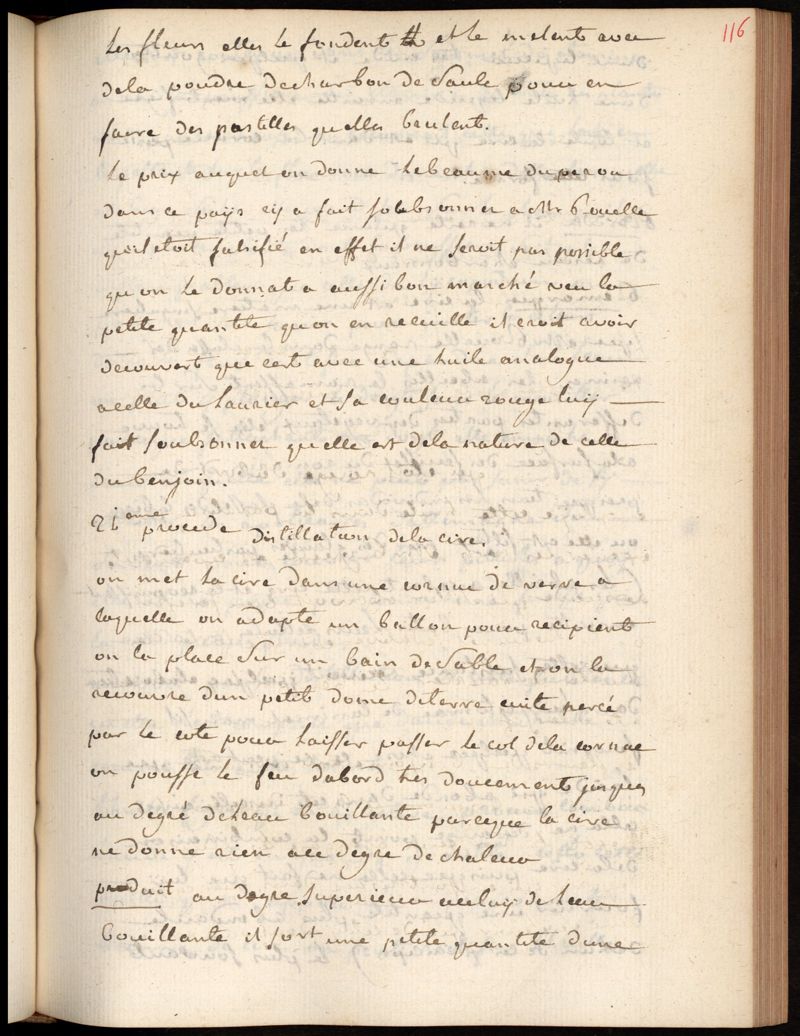 116
les fleurs elles le fondent et le melent avec
dela poudre decharbon de Saule pour en
faire des pastilles quelles brulent.
Le prix auquel on donne lebeaume duperou
dans ce païjs cij a fait soubsonner a Mr
quil etoit falsifié en effet il ne seroit pas possible
quon le donnat a aussi bon marché veu la
petite quantite quon en recuille il croit avoir
decouvert que cest avec une huile analogue
acelle du laurier et sa couleur rouge luij
fait soubsonner quelle est dela nature de celle
du benjoin.
procede distillation dela cire.
on met la cire dans une cornue de verre a
laquelle on adapte un ballon pour recipient
on la place sur un bain de sable et on la
recouvre dun petit dome deterre cuite percé
par le coté pour laisser passer le col dela cornue
on pousse le feu dabord tres doucement jusques
au degré deleau bouillante parceque la cire
ne donne rien ace degre de chaleur
produit au degre superieur aceluij de leau
bouillante il sort une petite quantite dune